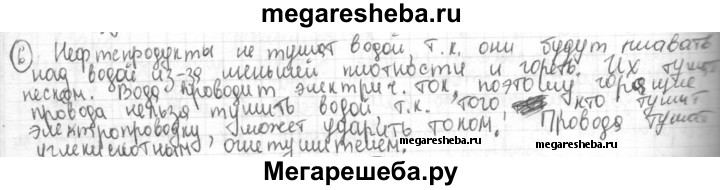 megaresheba.ru
6) Нефтепродукты не тушат водой, т.к. они будут плавать
над водой из-за меньшей плотности и гореть. Их тушат
песком. Вода проводит электрич. ток, поэтому горящие
провода нельзя тушить водой т.к. того кто тушит
электропроводку, может ударить током! Провода тушат
углекислотным огнетушителем.
megaresheba.ru
megaresheba.ru
Мегарешеба.ру